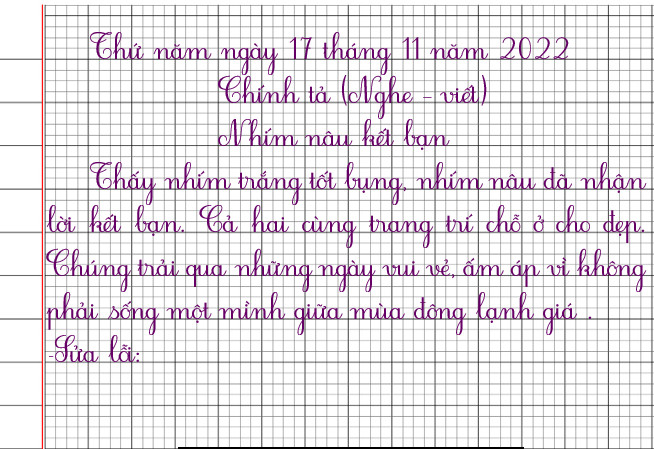 Thứ năm ngày 17 tháng 11 năm 2022
Chính tả (Nghe - viết)
Nhím nâu kết bạn
Thấy nhím trắng tốt bụng, nhím nâu đã nhận
lời kết bạn. Cả hai cùng trang trí chỗ ở cho đẹp.
Chúng trải qua những ngày vui vẻ, ấm áp vì không
phải sống một mình giữa mùa đông lạnh giá .
-Sửa lỗi: